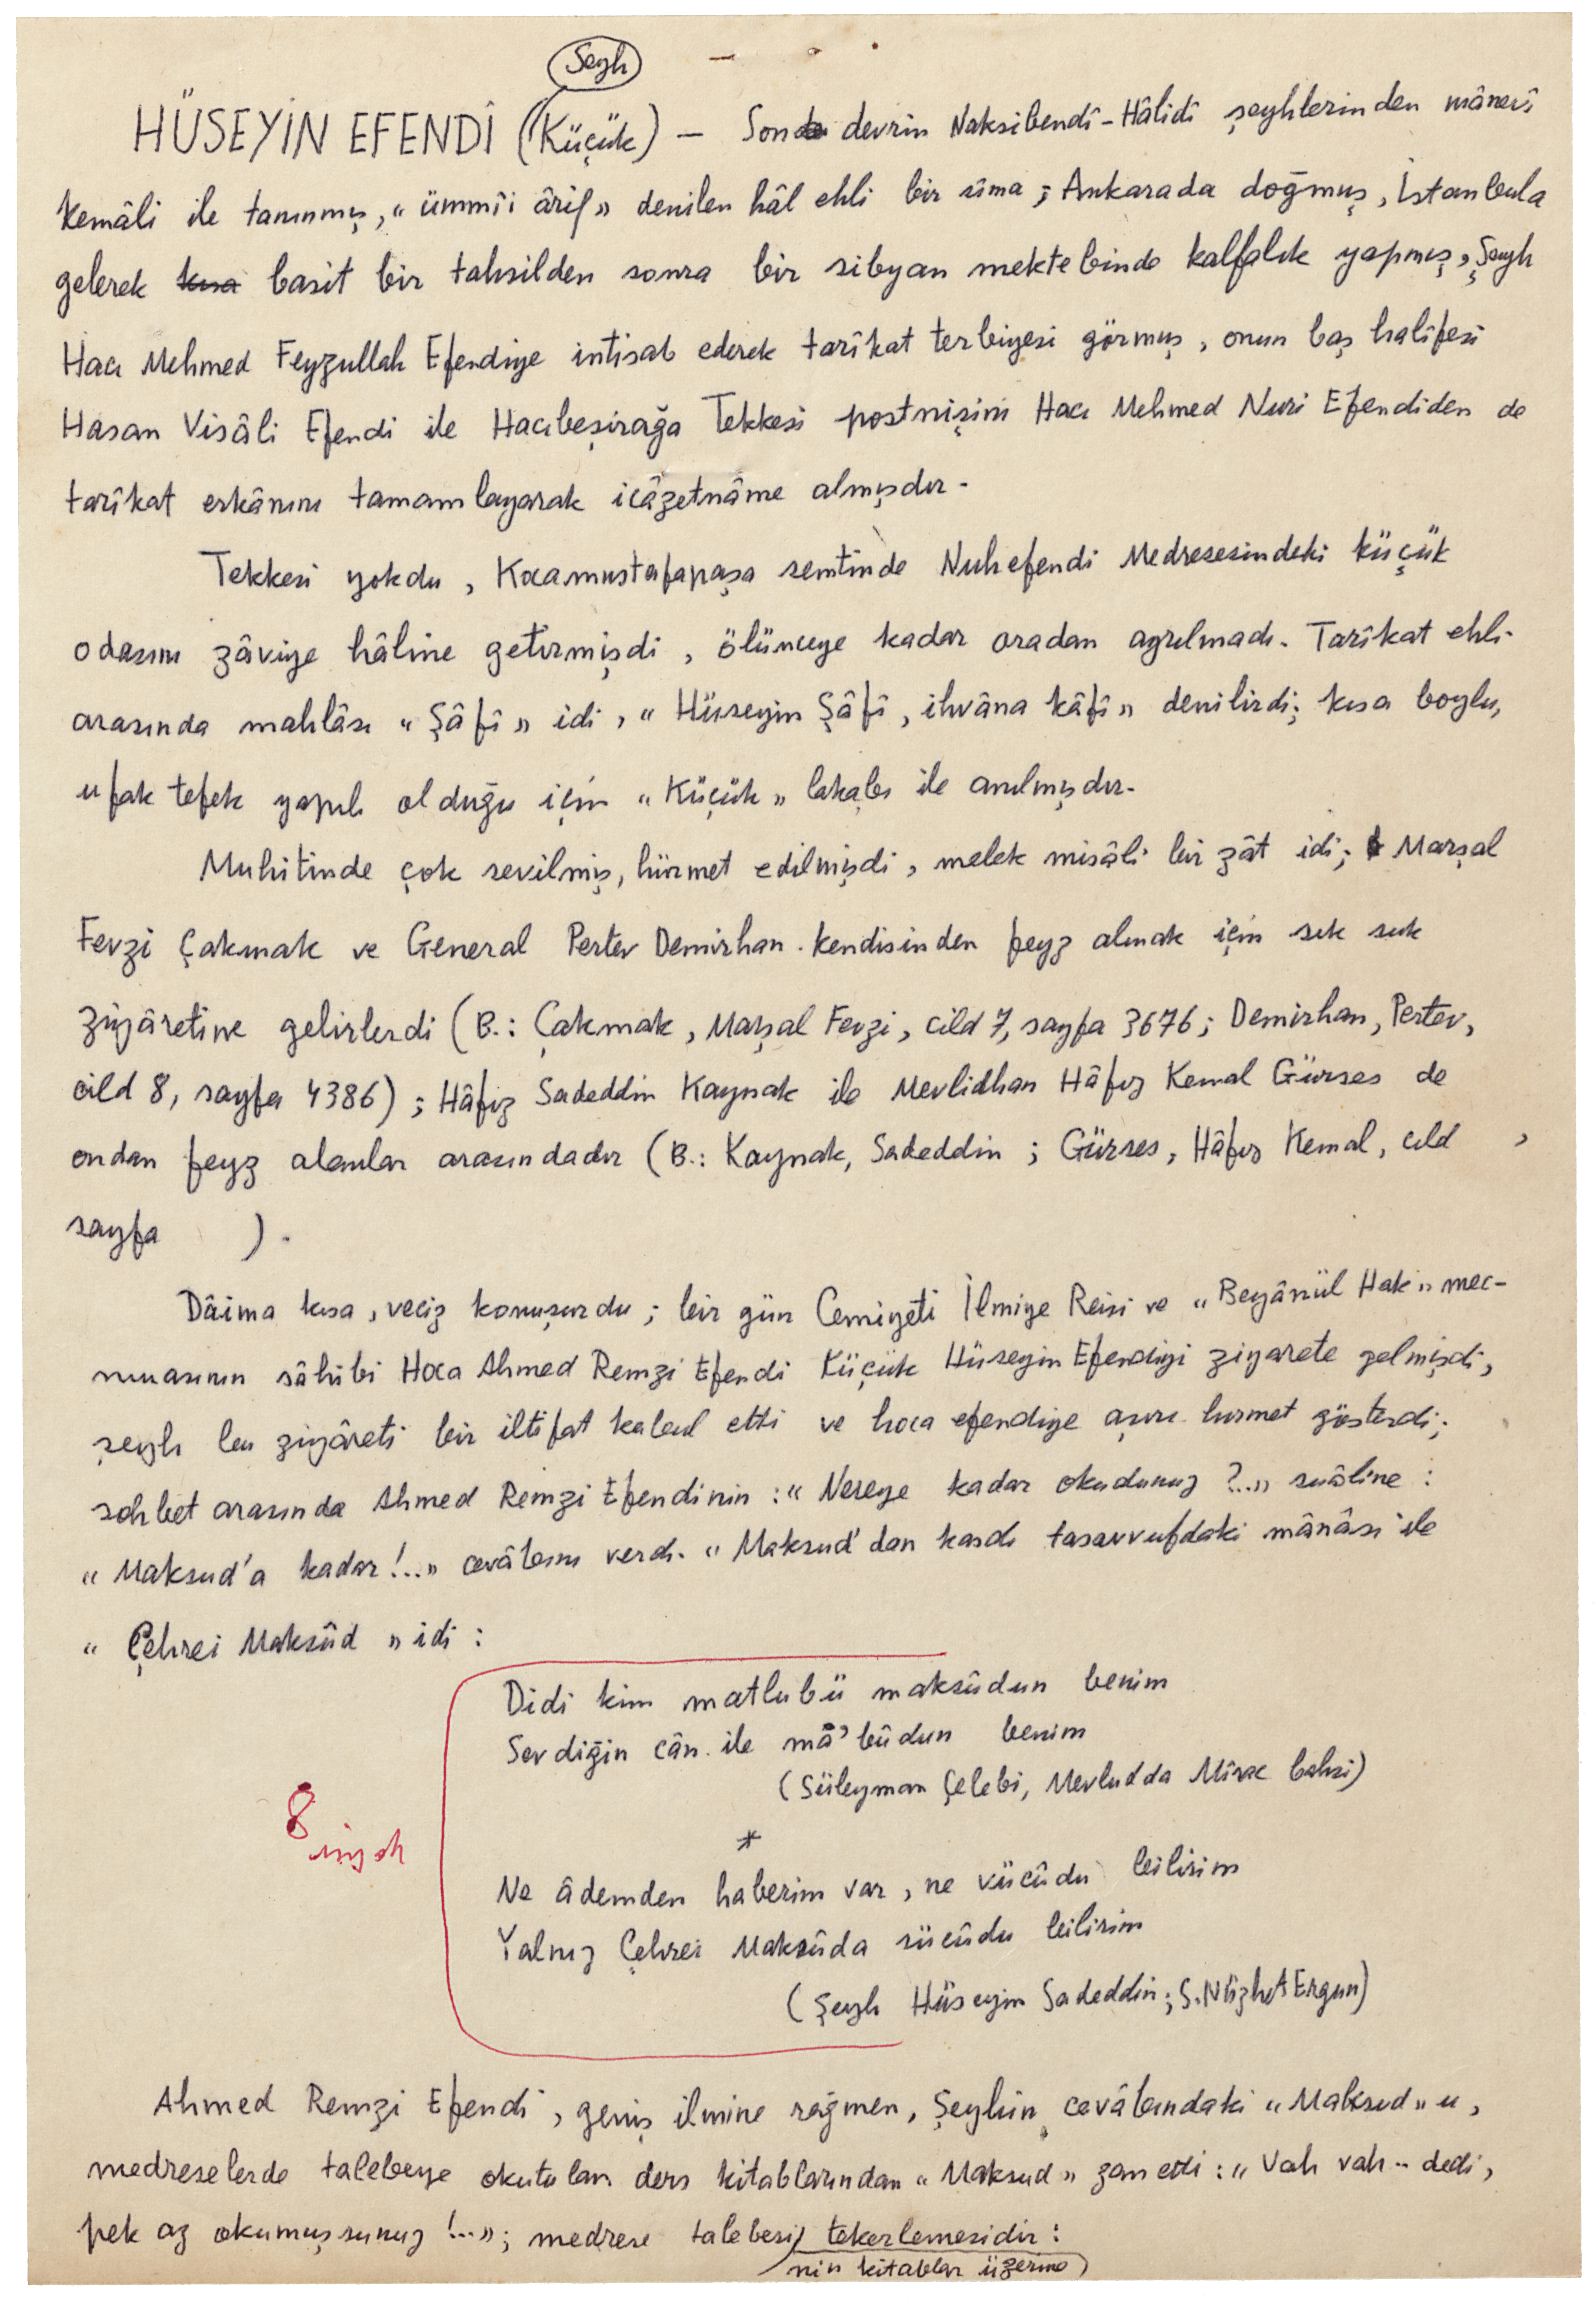 Şeyh
HÜSEYİN EFENDİ (Küçük) — Son devrin Nakşibendî-Hâlidî şeyhlerinden mânevî
kemâli ile tanınmış, "ümmîi ârif" denilen hâl ehli bir sîma; Ankarada doğmuş, İstanbula
gelerek kısa basit bir tahsilden sonra bir sibyan mektebinde kalfalık yapmış, Şeyh
Hacı Mehmed Feyzullah Efendiye intisab ederek tarîkat terbiyesi görmuş, onun baş halîfesi
Hasan Visâli Efendi ile Hacıbeşirağa Tekkesi postnişini Hacı Mehmed Nuri Efendiden de
tarîkat erkânını tamamlayarak icâzetnâme almışdır.
Tekkesi yokdu, Kocamustafapaşa semtinde Nuhefendi Medresesindeki küçük
odasını zâviye hâline getirmişdi, ölünceye kadar oradan ayrılmadı. Tarîkat ehli
arasında mahlâsı "Şâfî" idi, "Hüseyin Şâfî, ihvâna kâfî" denilirdi; kısa boylu,
ufak tefek yapılı olduğu için "Küçük" lakabı ile anılmışdır.
Muhitinde çok sevilmiş, hürmet edilmişdi, melek misâli bir zât idi; Marşal
Fevzi Çakmak ve General Pertev Demirhan kendisinden feyz almak için sık sık
ziyâretine gelirlerdi (B.: Çakmak, Marşal Fevzi, cild 7, sayfa 3676; Demirhan, Pertev,
cild 8, sayfa 4386); Hâfız Sadeddin Kaynak ile Mevlidhan Hâfız Kemal Gürses de
ondan feyz alanlar arasındadır (B.: Kaynak, Sadeddin; Gürses, Hâfız Kemal, cild ,
sayfa ).
Dâima kısa, veciz konuşurdu; bir gün Cemiyeti İlmiye Reisi ve "Beyânül Hak" mec-
muasının sâhibi Hoca Ahmed Remzi Efendi Küçük Hüseyin Efendiyi ziyarete gelmişdi,
şeyh bu ziyâreti bir iltifat kabul etti ve hoca efendiye aşırı hurmet gösterdi;
sohbet arasında Ahmed Remzi Efendinin : "Nereye kadar okudunuz ?..." suâline :
"Maksud'a kadar!..." cevâbını verdi. "Maksud'dan kasdı tasavvufdaki mânâsı ile
"Çehrei Maksûd" idi :
Didi kim matlubü maksûdun benim
Sevdiğin cân ile mâ'bûdun benim
(Süleyman Çelebi, Mevludda Mîrac bahsi)
*
8 inych
Ne âdemden haberim var, ne vücûdu bilirim
Yalnız Çehrei Maksûda sücûdu bilirim
(Şeyh Hüseyin Sadeddin; S. Nüzhet Ergun)
Ahmed Remzi Efendi, geniş ilmine rağmen, Şeyhin cevâbındaki "Maksud"u,
medreselerde talebeye okutulan ders kitablarından "Maksud" zan etdi : "Vah vah.. dedi,
pek az okumuşsunuz !..."; medrese talebesi tekerlemesidir :
nin kitablar üzerine